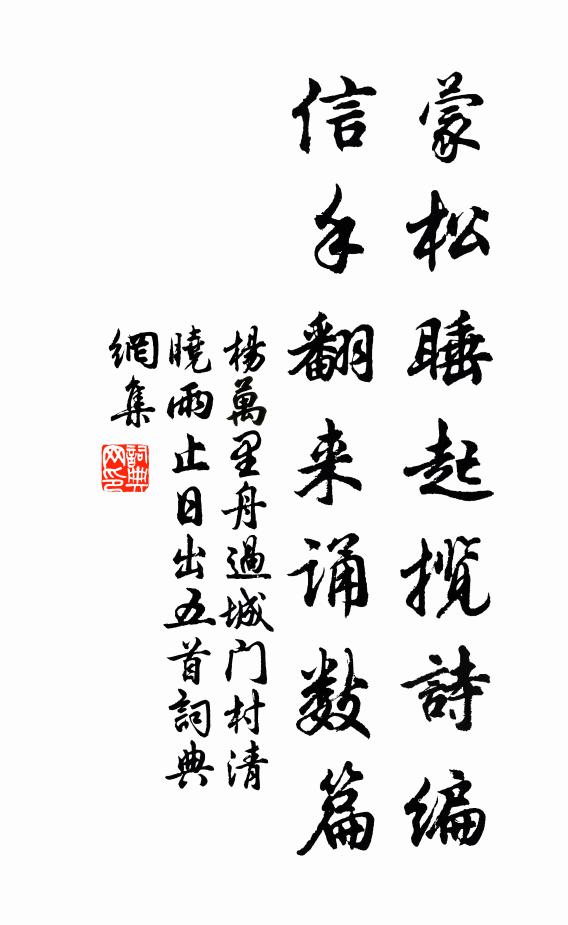 蒙松睡起揽詩编
信手翻来诵数篇
楊萬里舟過城门村清
曉雨止日出五首詞典
網集
詞典网印